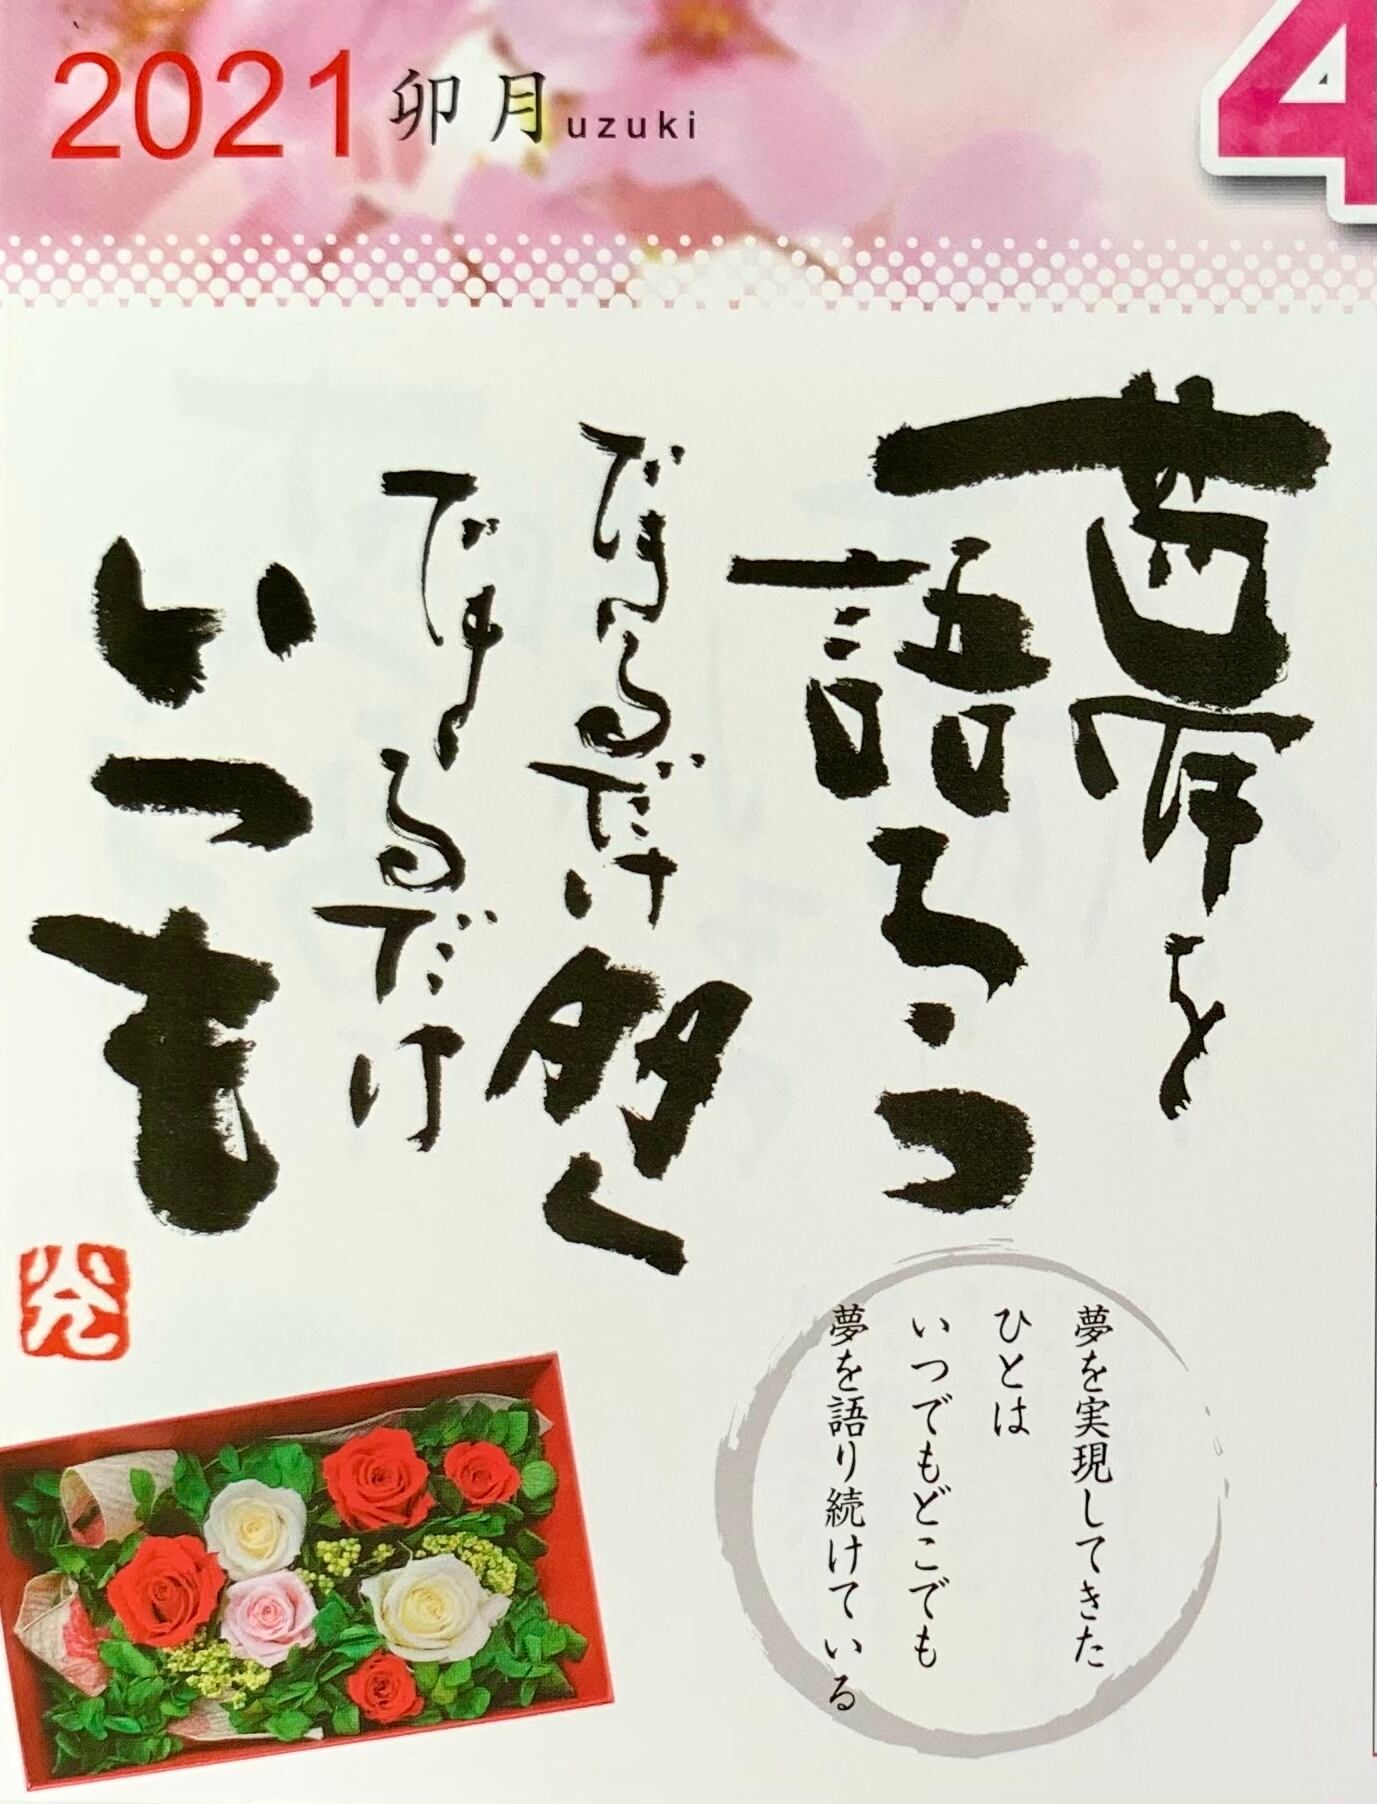 2021 卯月 uzuki
4
夢を
語ろう
できるだけ多く
できるだけ
いつも
夢を実現してきた
ひとは
いつでもどこでも
夢を語り続けている